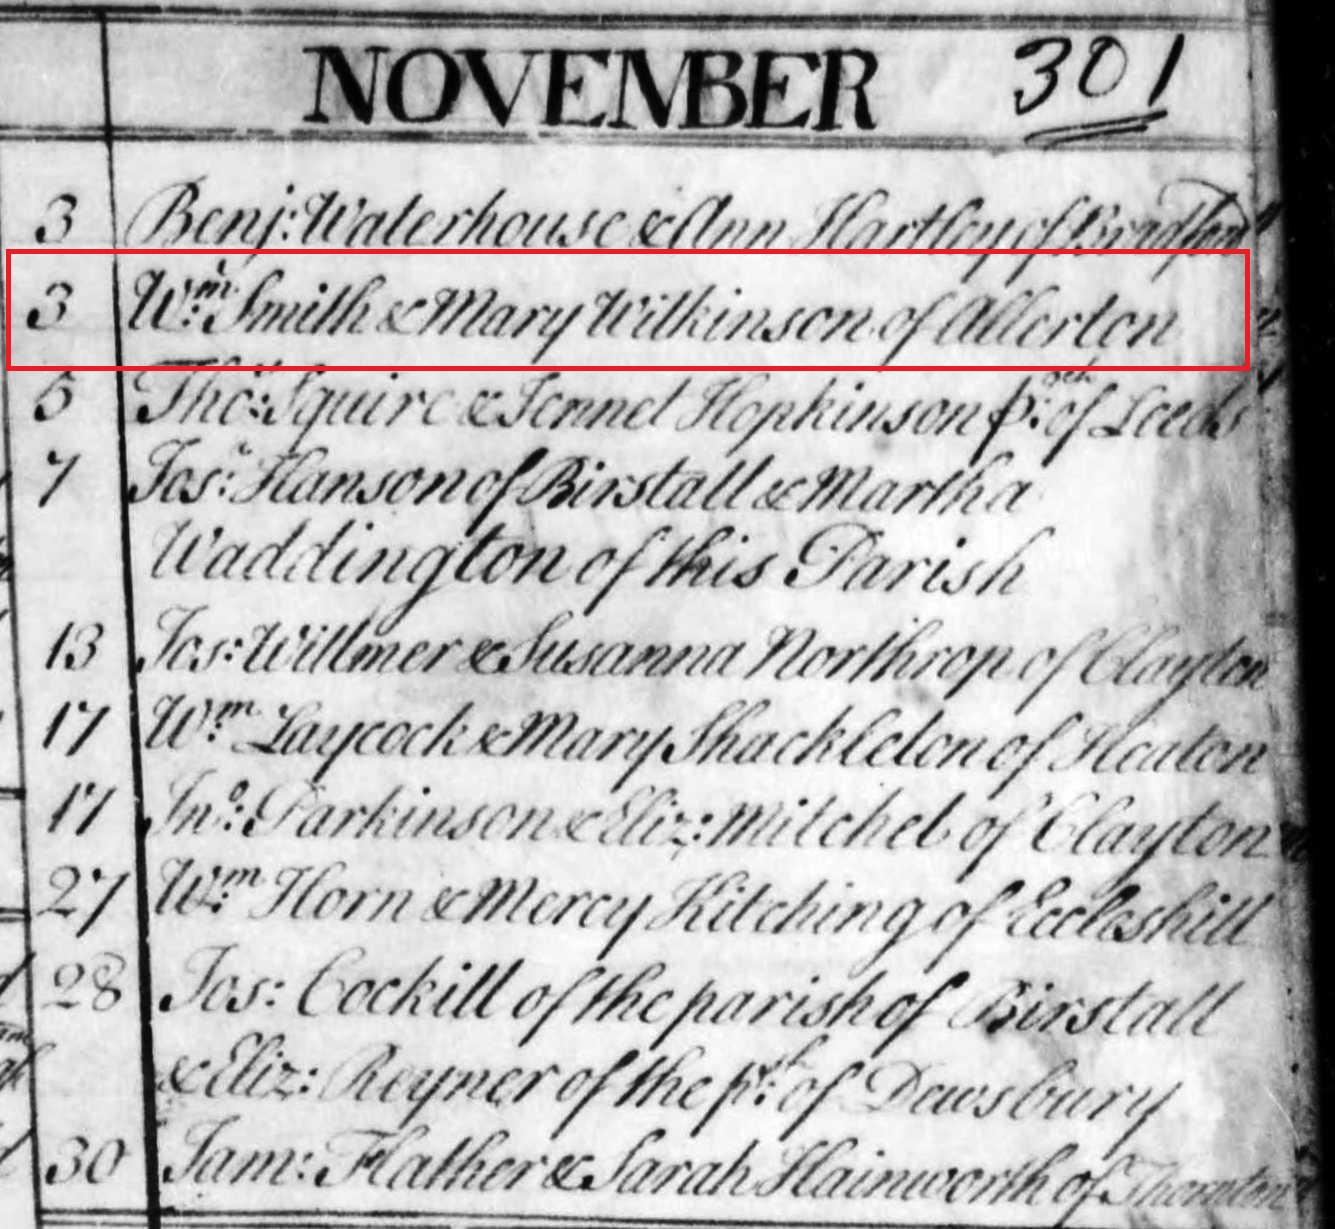 NOVEMBER 301
3 Benj: Waterhouse & Ann Hartley of Bradford
3 Wm: Smith & Mary Wilkinson of Allerton
5 Tho:s Squire & Jennet Hopkinson pr:sh of Leeds
7 Jos: Hanson of Birstall & Martha
Waddington of this Parish
13 Jos: Willmer & Susanna Northrop of Clayton
17 Wm: Laycock & Mary Shackleton of Heaton
17 Jno: Parkinson & Eliz: Mitchel of Clayton
27 Wm: Horn & Mercy Kitching of Eccleshill
28 Jos: Cockill of the parish of Birstall
& Eliz: Reyner of the psh: of Dewsbury
30 Jam: Flather & Sarah Hainworth of Thornton